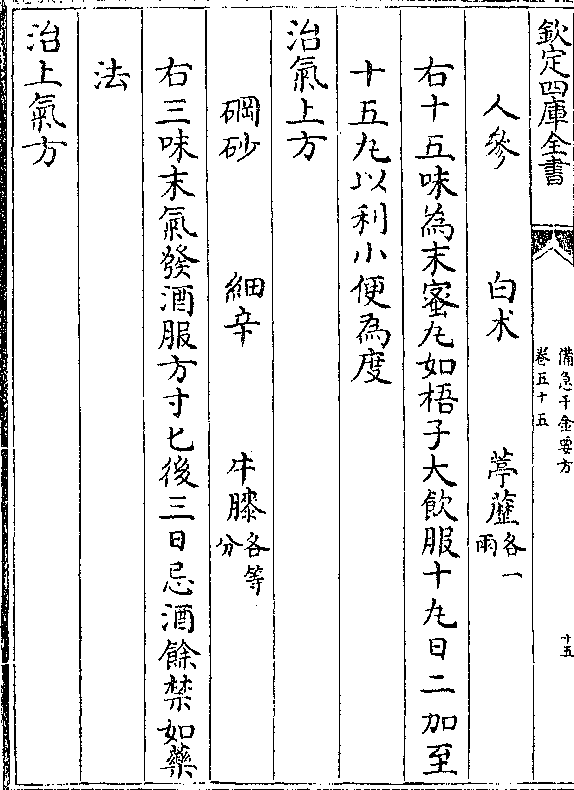 欽定四庫全書
備急千金要方
卷五十五
十五
人參 白术 葶藶各一兩
右十五味為末蜜丸如梧子大飲服十丸日二加至
十五丸以利小便為度
治氣上方
硇砂 細辛 牛膝各等分
右三味末氣發酒服方寸匕後三日忌酒餘禁如藥
法
治上氣方